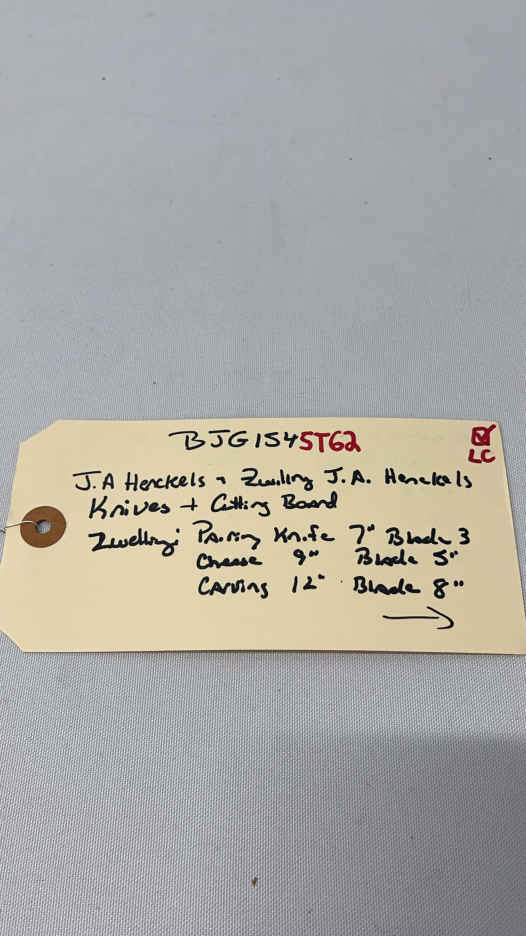 BJG1545TG2
LC
J.A Henckels + Zwilling J.A. Henckels
Knives + Cutting Board
Zwelling: Pairing Knife 7" Blade 3
Cheese 9" Blade 5"
Carving 12" Blade 8"